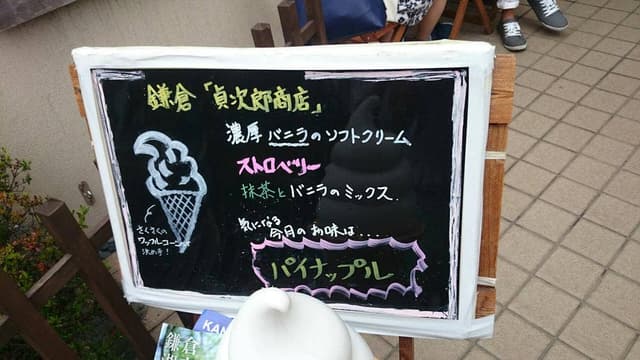 鎌倉「貞次郎商店」
濃厚バニラのソフトクリーム
ストロベリー
抹茶とバニラのミックス.
気になる
今月のお味は...
パイナップル
さくさくの
ワッフルコーンが
決め手!
KAN
鎌倉